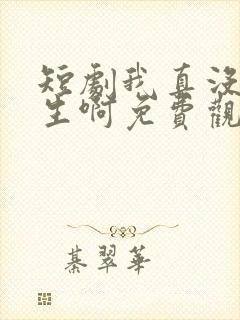 短劇我真没
生啊免費觀
綦翠華